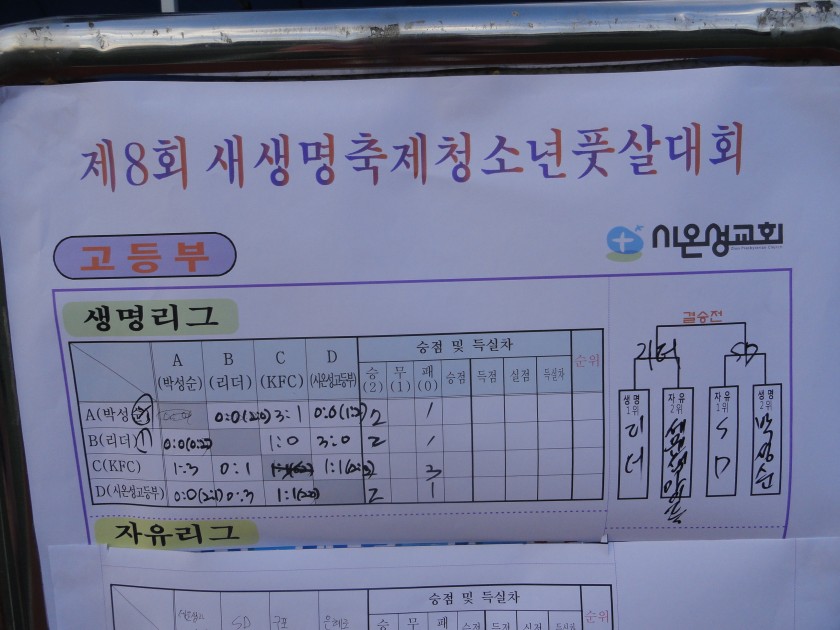 제8회 새생명축제청소년풋살대회
고등부
시온성교회
생명리그
결승전
리더 SD
A B C D 승점 및 득실차 순위
(박성순) (리더) (KFC) (시온성고등부) 승(2) 무(1) 패(0) 승점 득점 실점 득실차
A(박성순) 2 0:0(2:0) 3:1 0:0(1:2) 2 1
B(리더) 1 0:0(0:2) 1:0 3:0 2 1
C(KFC) 1:3 0:1 3
D(시온성고등부) 0:0(2:1) 0:3 1:1 2 1
생명 1위 리더
자유 2위
자유 1위 SD
생명 2위 박성순
자유리그
SD 구포
승점 및 득실차 순위
승 무 패 승점 득점 실점 득실차